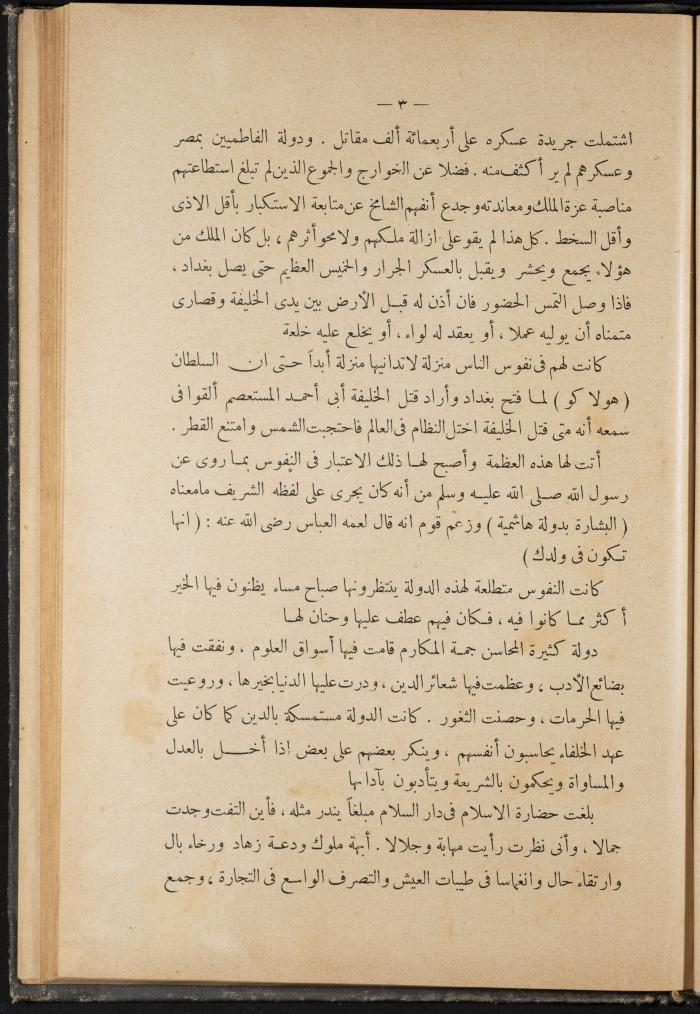 — ٣ —
اشتملت جريدة عسكره على أربعمائة ألف مقاتل . ودولة الفاطميين بمصر
وعسكرهم لم ير أكثف منه . فضلا عن الخوارج والجموع الذين لم تبلغ استطاعتهم
مناصبة عزة الملك ومعاندته وجدع أنفهم الشامخ عن متابعة الاستكبار بأقل الاذى
وأقل السخط . كل هذا لم يقو على ازالة ملكهم ولا محو أثرهم ، بل كان الملك من
هؤلاء يجمع ويحشر ويقبل بالعسكر الجرار والخميس العظيم حتى يصل بغداد ،
فاذا وصل التمس الحضور فان أذن له قبل الأرض بين يدى الخليفة وقصارى
متمناه أن يوليه عملا ، أو يعقد له لواء ، أو يخلع عليه خلعة
كانت لهم فى نفوس الناس منزلة لاتدانيها منزلة أبداً حتى ان السلطان
( هولا كو ) لما فتح بغداد وأراد قتل الخليفة أبى أحمد المستعصم ألقوا فى
سمعه أنه متى قتل الخليفة اختل النظام فى العالم فاحتجبت الشمس وامتنع القطر .
أتت لها هذه العظمة وأصبح لها ذلك الاعتبار فى النفوس بما روى عن
رسول الله صلى الله عليه وسلم من أنه كان يجرى على لفظه الشريف مامعناه
( البشارة بدولة هاشمية ) وزعم قوم انه قال لعمه العباس رضى الله عنه : ( انها
تكون فى ولدك )
كانت النفوس متطلعة لهذه الدولة ينتظرونها صباح مساء يظنون فيها الخير
أكثر مما كانوا فيه ، فكان فيهم عطف عليها وحنان لها
دولة كثيرة المحاسن جمة المكارم قامت فيها أسواق العلوم ، ونفقت فيها
بضائع الأدب ، وعظمت فيها شعائر الدين ، ودرت عليها الدنيا بخيرها ، وروعيت
فيها الحرمات ، وحصنت الثغور . كانت الدولة مستمسكة بالدين كما كان على
عهد الخلفاء يحاسبون أنفسهم ، وينكر بعضهم على بعض إذا أخل بالعدل
والمساواة ويحكمون بالشريعة ويتأدبون بآدابها
بلغت حضارة الاسلام فى دار السلام مبلغاً يندر مثله ، فأين التفت وجدت
جمالا ، وأنى نظرت رأيت مهابة وجلالا . أبهة ملوك ودعة زهاد ورخاء بال
وارتقاء حال وانغماسا فى طيبات العيش والتصرف الواسع فى التجارة ، وجمع